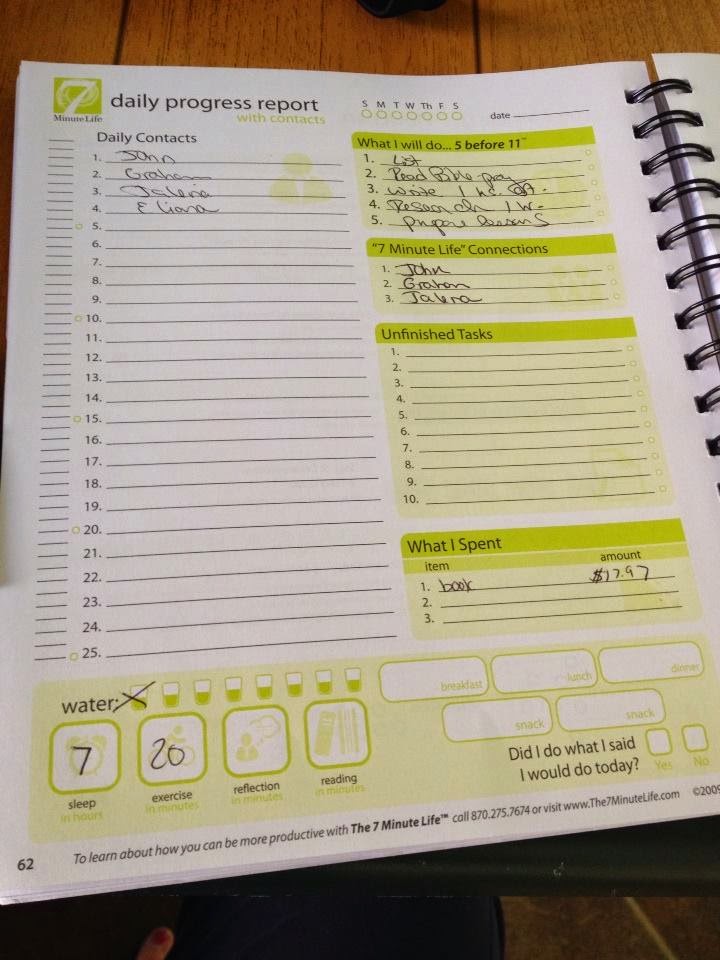 7
Minute Life
daily progress report
with contacts
S M T W Th F S
date
Daily Contacts
1. John
2. Graham
3. Jalena
4. Eliana
5.
6.
7.
8.
9.
10.
11.
12.
13.
14.
15.
16.
17.
18.
19.
20.
21.
22.
23.
24.
25.
What I will do... 5 before 11™
1. List
2. Read Bible-pray
3. Write 1 hr.
4. Research 1 hr.
5. prepare lessons
"7 Minute Life" Connections
1. John
2. Graham
3. Jalena
Unfinished Tasks
1.
2.
3.
4.
5.
6.
7.
8.
9.
10.
What I Spent
item amount
1. book $17.97
2.
3.
water:
breakfast lunch dinner
snack snack
7 20
sleep exercise reflection reading
in hours in minutes in minutes in minutes
Did I do what I said
I would do today? Yes No
62 To learn about how you can be more productive with The 7 Minute Life™ call 870.275.7674 or visit www.The7MinuteLife.com ©2009